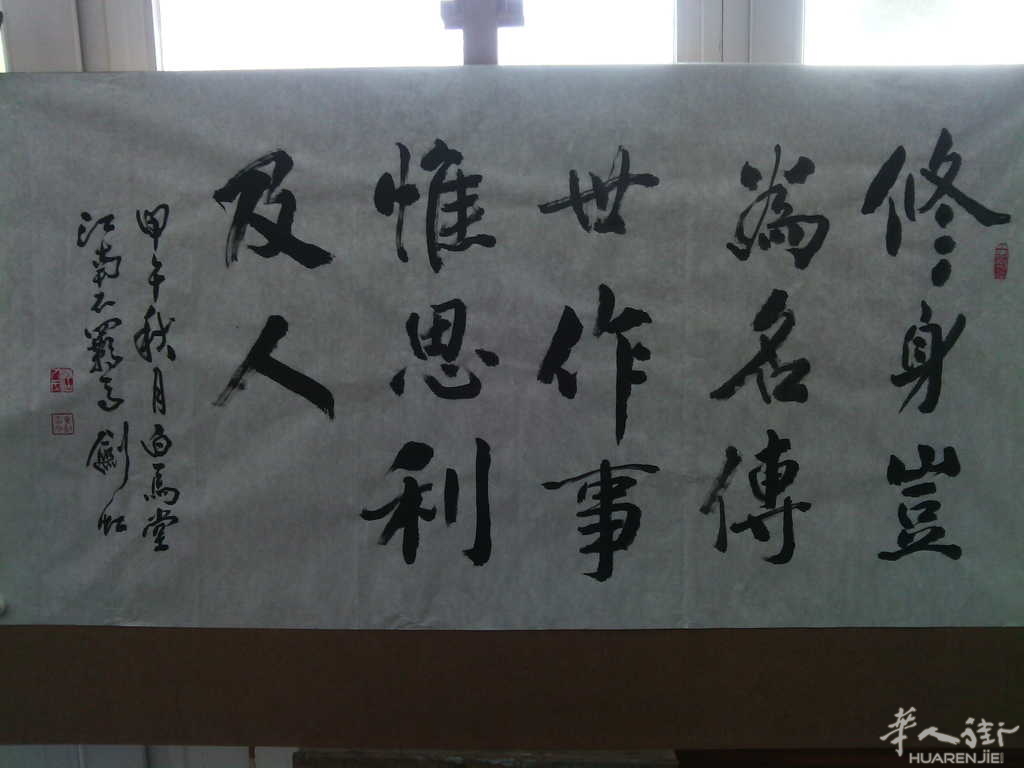 修身豈
為名傳
世作事
惟思利
及人
甲午秋月白馬堂
江南不羈子 劍虹
華人街
HUARENJIE